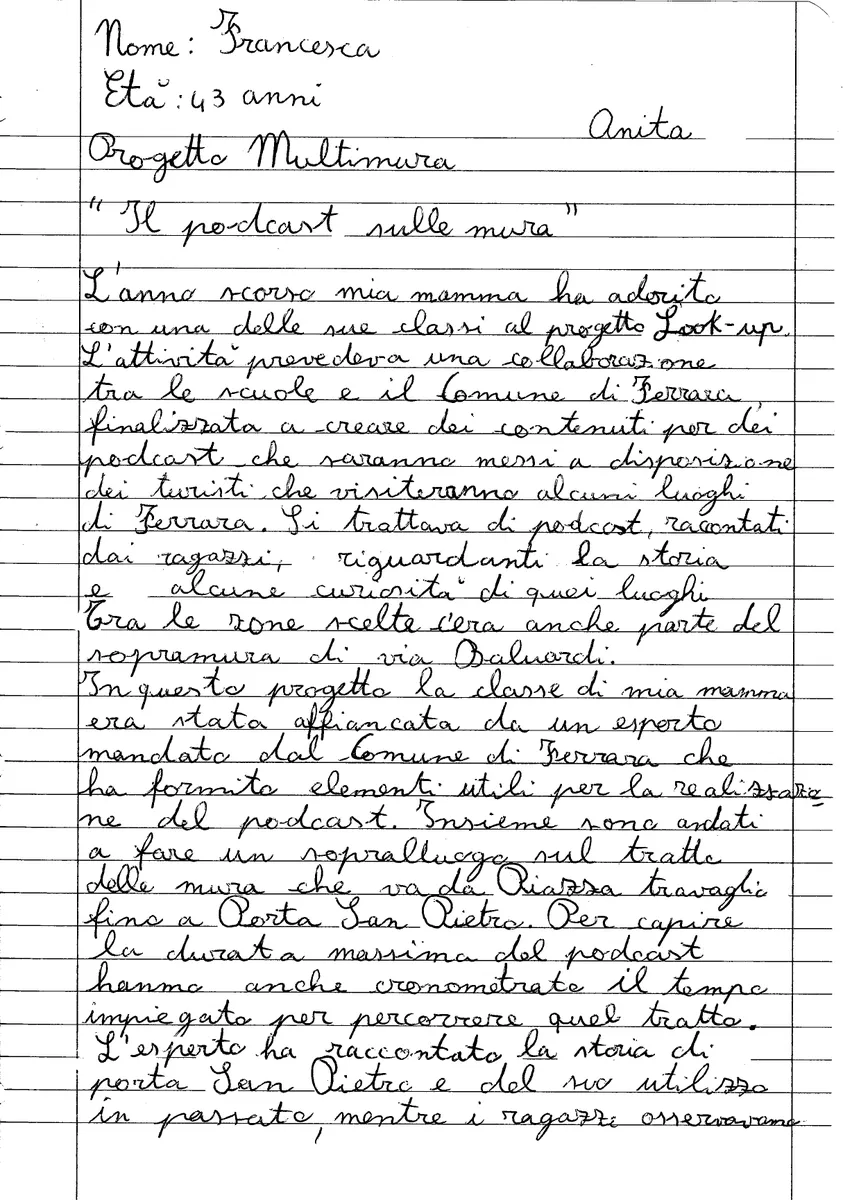 Nome: Francesca
Età: 43 anni
Anita
Progetto Multimura
"Il podcast sulle mura"
L'anno scorso mia mamma ha aderito
con una delle sue classi al progetto Look-up.
L'attività prevedeva una collaborazione
tra le scuole e il Comune di Ferrara,
finalizzata a creare dei contenuti per dei
podcast che saranno messi a disposizione
dei turisti che visiteranno alcuni luoghi
di Ferrara. Si trattava di podcast, racontati
dai ragazzi, riguardanti la storia
e alcune curiosità di quei luoghi
Tra le zone scelte c'era anche parte del
sopramura di via Baluardi.
In questo progetto la classe di mia mamma
era stata affiancata da un esperto
mandato dal Comune di Ferrara che
ha fornito elementi utili per la realizzazio
ne del podcast. Insieme sono andati
a fare un sopralluogo sul tratto
delle mura che va da Piazza travaglio
fino a Porta San Pietro. Per capire
la durata massima del podcast
hanno anche cronometrato il tempo
impiegato per percorrere quel tratto.
L'esperto ha raccontato la storia di
porta San Pietro e del suo utilizzo
in passato, mentre i ragazzi osservavano